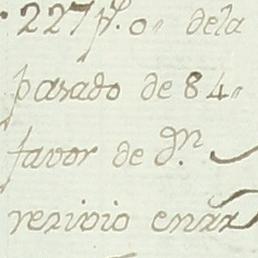 227 p.s 0 dela
pasado de 84
favor de Dn.
rezivio en